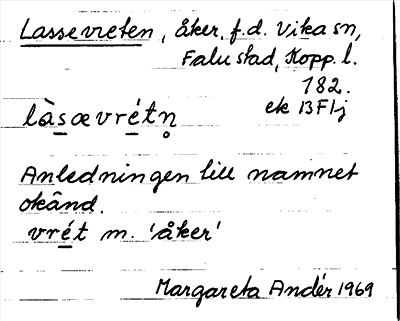 Lassevreten, åker, f.d. Vika sn,
Falu stad, Kopp. l.
182.
ek 13F1j
làsævrétn̥
Anledningen till namnet
okänd.
vrét m. 'åker'
Margareta Andér 1969